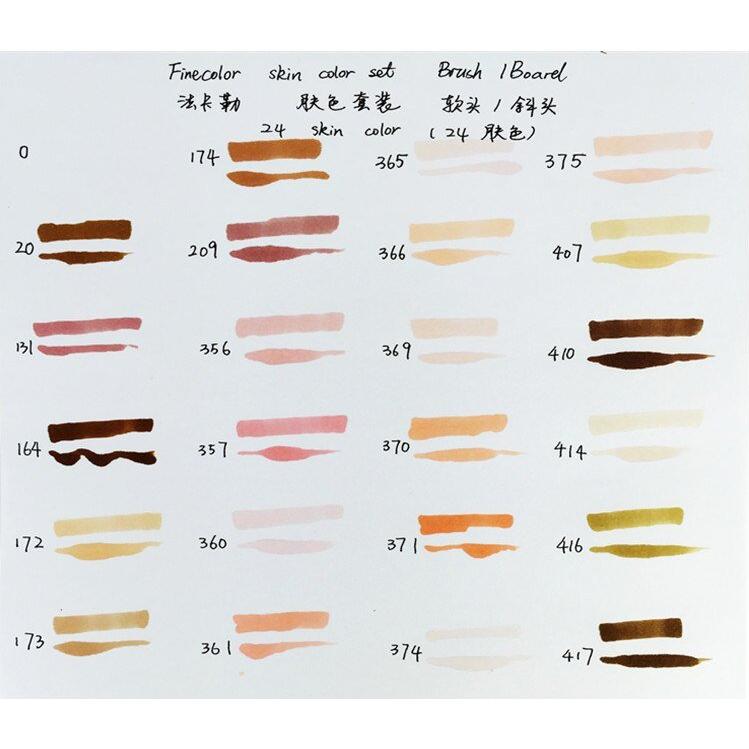 Finecolor skin color set Brush / Board
法卡勒 肤色套装 软头 / 斜头
24 skin color (24 肤色)
0 174 365 375
20 209 366 407
131 356 369 410
164 357 370 414
172 360 371 416
173 361 374 417